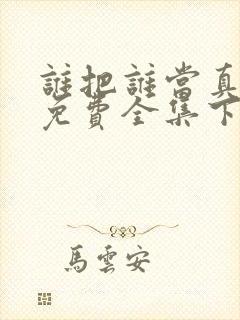 誰把誰當真
免費全集下
馬雲安